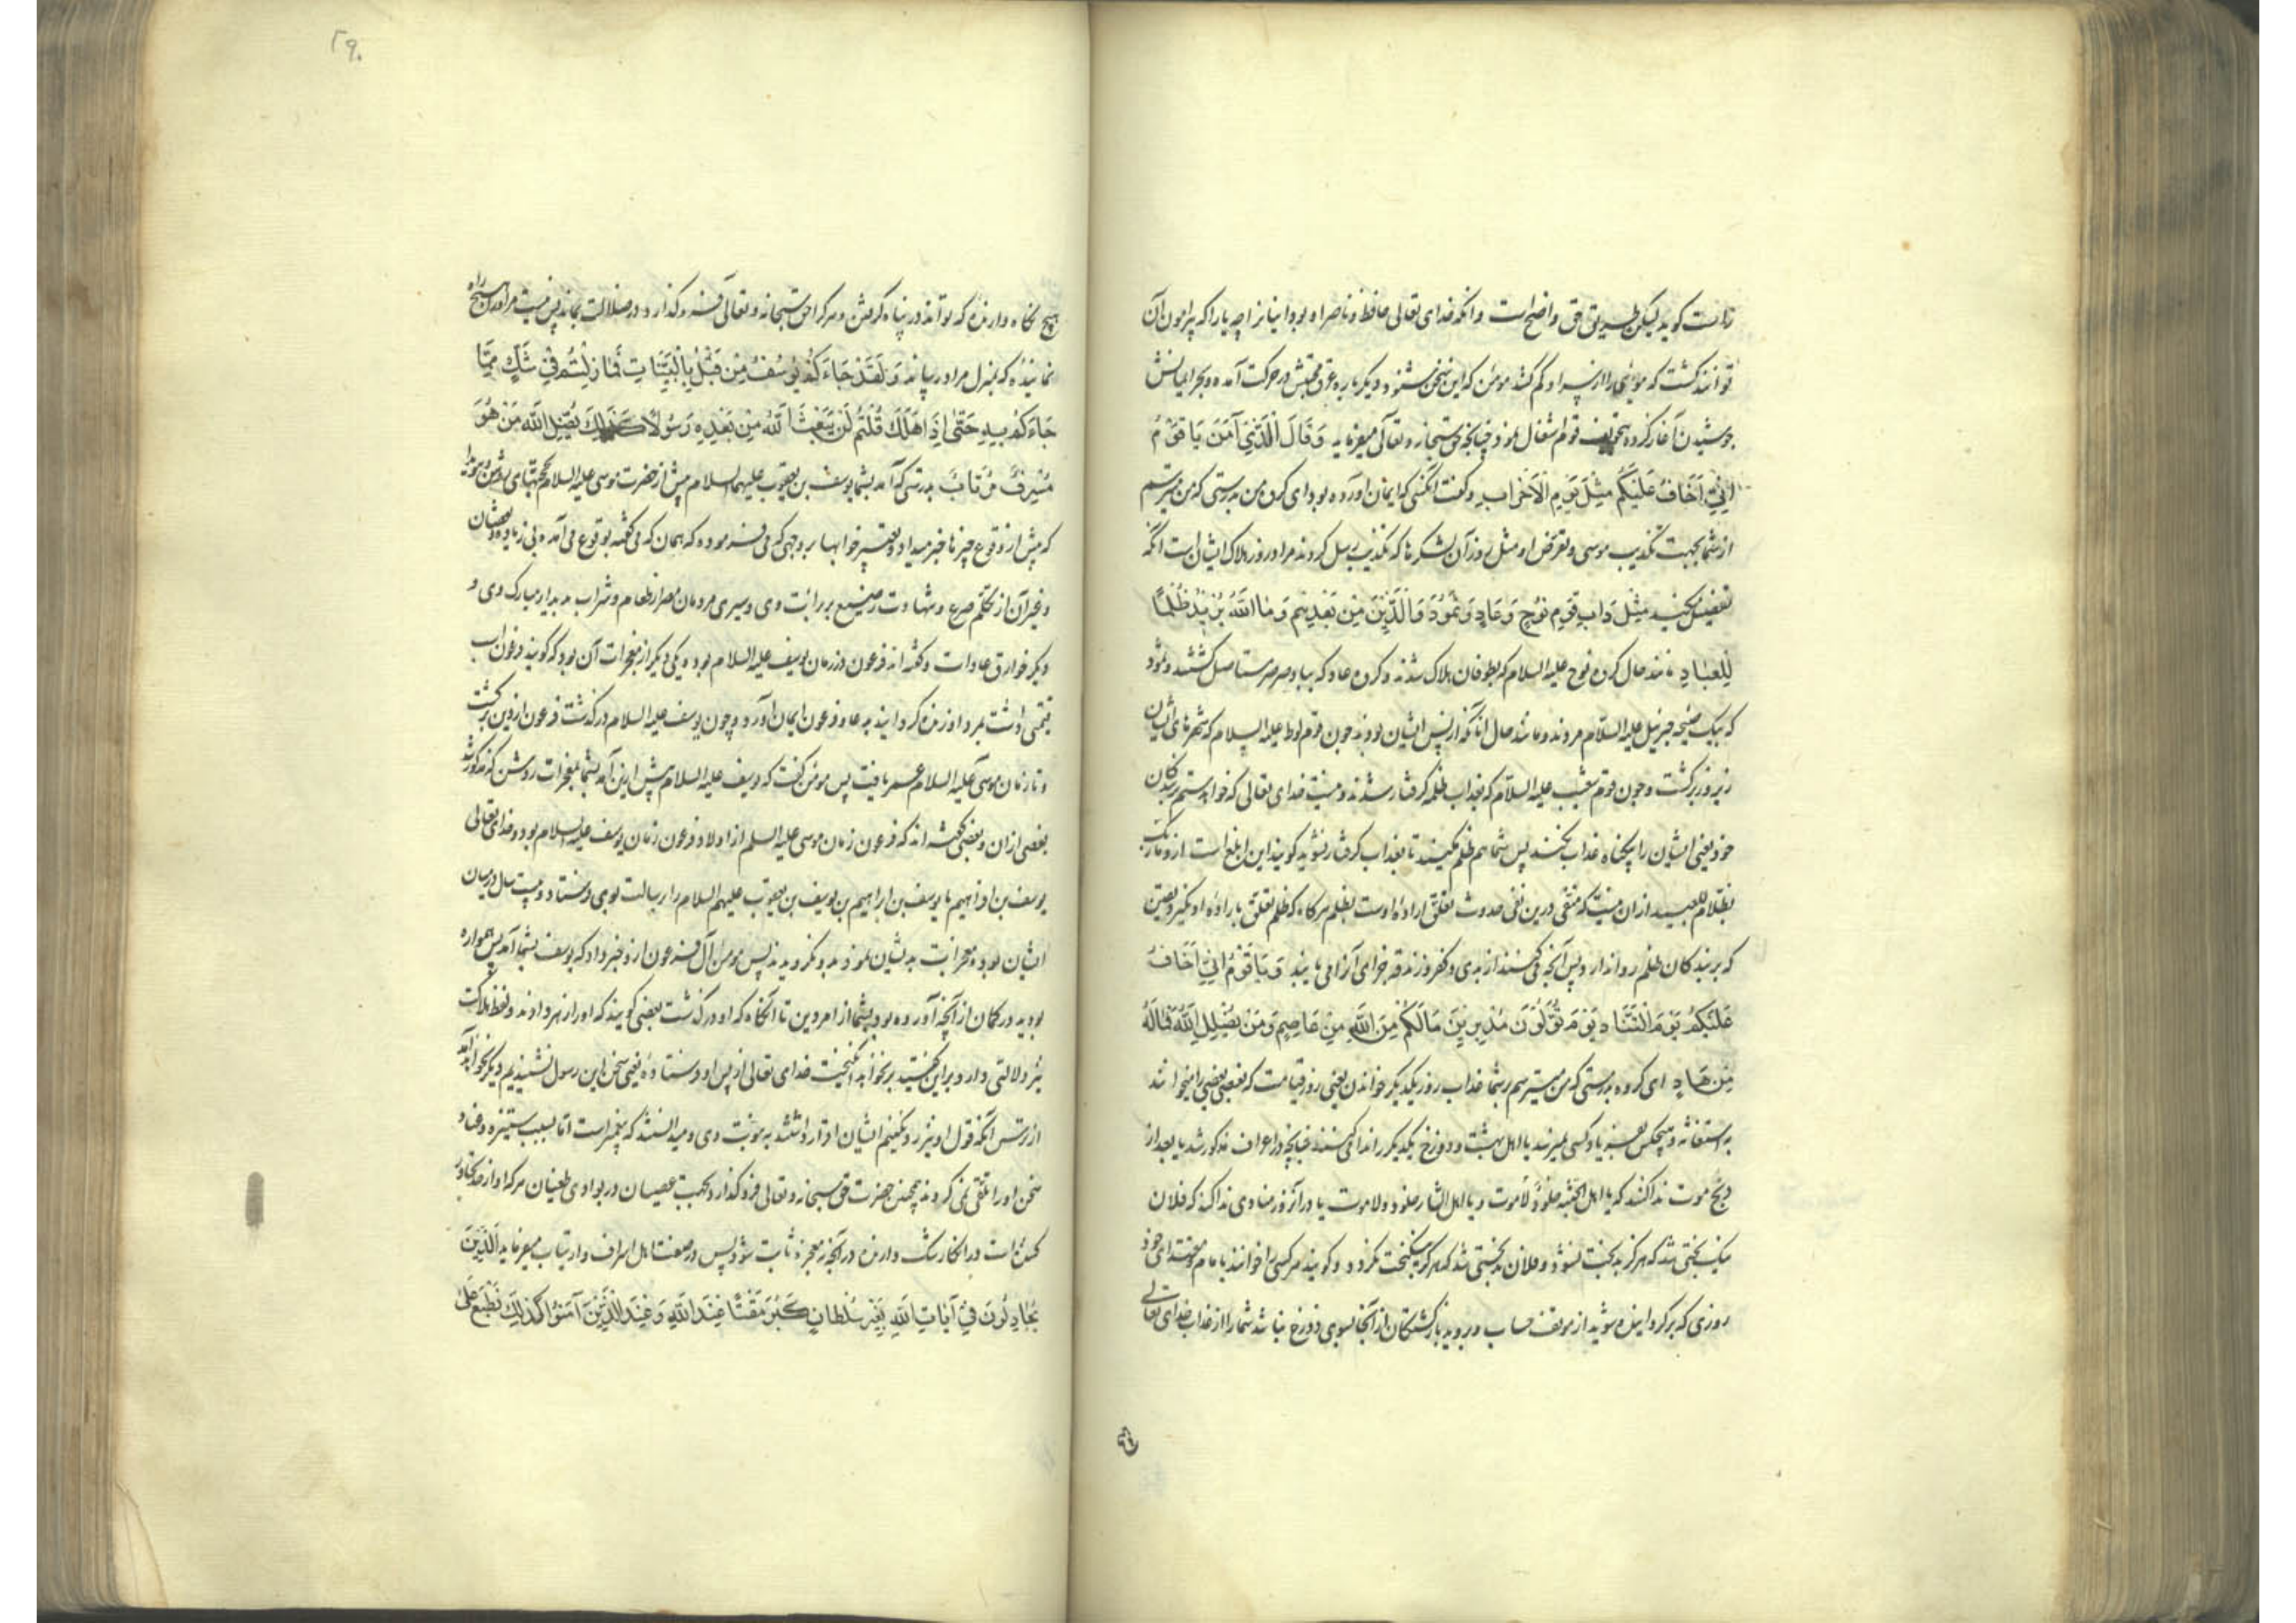 راست کوید لیکن طریق حق واضح است و انکه خدای تعالی حافظ و ناصر او بود اینانرا چه یارا که پیرامون آن
توانند کشت که موئی را از سر او کم کنند مومن که این سخن بشنود دیکر باره عرق محبتش در حرکت آمده و بحر ایمانش
جوشیدن آغاز کرده بتخویف قوم اشتغال نمود چنانچه حق سبحانه و تعالی میفرماید وَقَالَ الَّذِيَ آمَنَ يَا قَوْمِ
اِنِّي اَخَافُ عَلَيْكُم مِثْلَ يَوْمِ الْاَحْزَابِ و کفت انکسی که ایمان آورده بود ای کروه من بدرستی که من میترسم
از شما بجهت تکذیب موسی و تعرض او مثل روز آن لشکرها که تکذیب رسل کردند مراد روز هلاک ایشان است انکه
تفصیل میکند مِثْلَ دَابِ قَوْمِ نُوحٍ وَعَادٍ وَثَمُودَ وَالَّذِينَ مِنْ بَعْدِهِم وَمَا اللَّهُ يُرِيدُ ظُلْمًا
لِلْعِبَادِ مانند حال کروه نوح علیه السلام که بطوفان هلاک شدند و کروه عاد که بباد صرصر مستاصل کشتند و ثمود
که بیک صیحه جبرئیل علیه السلام مردند و مانند حال آنانکه از پس ایشان بودند چون قوم لوط علیه السلام که شهرهای ایشان
زیر و زبر کشت و چون قوم شعیب علیه السلام که بعذاب ظله کرفتار شدند و نیست خدای تعالی که خواهد ستم بر بندکان
خود یعنی ایشان را بیکناه عذاب نکند پس شما هم ظلم مکنید تا بعذاب کرفتار نشوید کویند این ابلغ است از و ما ربک
بظلام للعبید از آن حیثیت که منفی درین نفی حدوث تعلق اراده اوست بظلم هرکاه که ظلم تعلق باراده او نکیرد یقین
که بر بندکان ظلم روا ندارد پس آنچه می کنند از بدی و کفر و زندقه جزای آنرا می یابند وَيَا قَوْمِ اِنِّي اَخَافُ
عَلَيْكُمْ يَوْمَ التَّنَادِ يَوْمَ تُوَلُّونَ مُدْبِرِينَ مَا لَكُمْ مِنَ اللَّهِ مِنْ عَاصِمٍ وَمَنْ يُضْلِلِ اللَّهُ فَمَا لَهُ
مِنْ هَادٍ ای کروه بدرستی که من میترسم بر شما عذاب روز یکدیکر خواندن یعنی روز قیامت که بعضی بعضی را میخوانند
به استغاثه و هیچکس بفریاد کسی نمیرسد یا اهل بهشت و دوزخ یکدیکر را ندا می کنند چنانچه در اعراف مذکور شد یا بعد از
ذبح موت ندا کنند که یا اهل الجنة خلود ولا موت و یا اهل النار خلود ولا موت یا در آنروز منادی ندا کند که فلان
نیک بختی شد که هرکز بدبخت نشود و فلان بدبختی شد که هرکز نیکبخت نکردد و کویند هر کسی را خوانند با مام مقتدای خود
روزی که برکردانیده شوید از موقف حساب و بروید بازکشتکان از آنجا بسوی دوزخ نباشد شما را از عذاب خدای تعالی
۲۹۰
هیچ نکاه دارنده که تواند در پناه کرفتن و هر کرا حق سبحانه و تعالی فرو کذارد و در ضلالت بماند پس نیست مر او را هیچ راه
نماینده که بمنزل مراد رساند وَلَقَدْ جَاءَكُمْ يُوسُفُ مِنْ قَبْلُ بِالْبَيِّنَاتِ فَمَا زِلْتُمْ فِي شَكٍّ مِمَّا
جَاءَكُمْ بِهِ حَتَّى اِذَا هَلَكَ قُلْتُمْ لَنْ يَبْعَثَ اللَّهُ مِنْ بَعْدِهِ رَسُولًا كَذَلِكَ يُضِلُّ اللَّهُ مَنْ هُوَ
مُسْرِفٌ مُرْتَابٌ بدرستی که آمد بشما یوسف بن یعقوب علیهما السلام پیش از حضرت موسی علیه السلام بحجتهای روشن
که پیش از وقوع چیزها خبر میداد و تعبیر خوابها بر وجهی که می فرموده که همان که می کفته بوقوع می آمده بی زیاده و نقصان
و غیر آن از تکلم صبی و شهادت رضیع بر برائت وی و سیری مردمان مصر از طعام و شراب بدیدار مبارک وی و
دیکر خوارق عادات و کفته اند فرعون در زمان یوسف علیه السلام بوده یکی دیکر از معجزات آن بود که کویند فرعون اسب
قیمتی داشت بمرد او زنده کردانید بدعا و فرعون ایمان آورد و چون یوسف علیه السلام درکذشت فرعون از دین برکشت
و تا زمان موسی علیه السلام عمر یافت پس مومن کفت که یوسف علیه السلام پیش از این آمد بشما بمعجزات روشن که مذکور شد
بعضی از آن و بعضی کفته اند که فرعون زمان موسی علیه السلم از اولاد فرعون زمان یوسف علیه السلام بود و خدای تعالی
یوسف بن افرائیم یا یوسف بن ابراهیم بن یوسف بن یعقوب علیهم السلام را برسالت بوی فرستاد و بیست سال در میان
ایشان بود و معجزات بدیشان نمود بدو نکرویدند پس مومن آل فرعون از او خبر داد که یوسف بشما آمد پس همواره
بودید در کمان از آنچه آورده بود بشما از امر دین تا آنکاه که او درکذشت بعضی کویند که او را زهر دادند و لفظ هلاکت
نیز دلالتی دارد بر این کفتید بر نخواهد انکیخت خدای تعالی از پس او فرستاده یعنی سخن این رسول نشنیدیم دیکر نخواهد آمد
از ترس آنکه قول او نیز رد کنیم ایشان اقرار داشتند به نبوت وی و میدانستند که پیغمبر است اما بسبب ستیزه و عناد
سخن او را تلقی نمی کردند همچنین حضرت حق سبحانه و تعالی فرو کذارد بجهت عصیان در بوادی طغیان هر کرا او از حد تجاوز
کننده است در انکار شک دارنده در آنچه بمعجزه ثابت شود پس در صفت اهل اسراف و ارتیاب میفرماید الَّذِينَ
يُجَادِلُونَ فِي آيَاتِ اللَّهِ بِغَيْرِ سُلْطَانٍ كَبُرَ مَقْتًا عِنْدَ اللَّهِ وَعِنْدَ الَّذِينَ آمَنُوا كَذَلِكَ يَطْبَعُ عَلَى